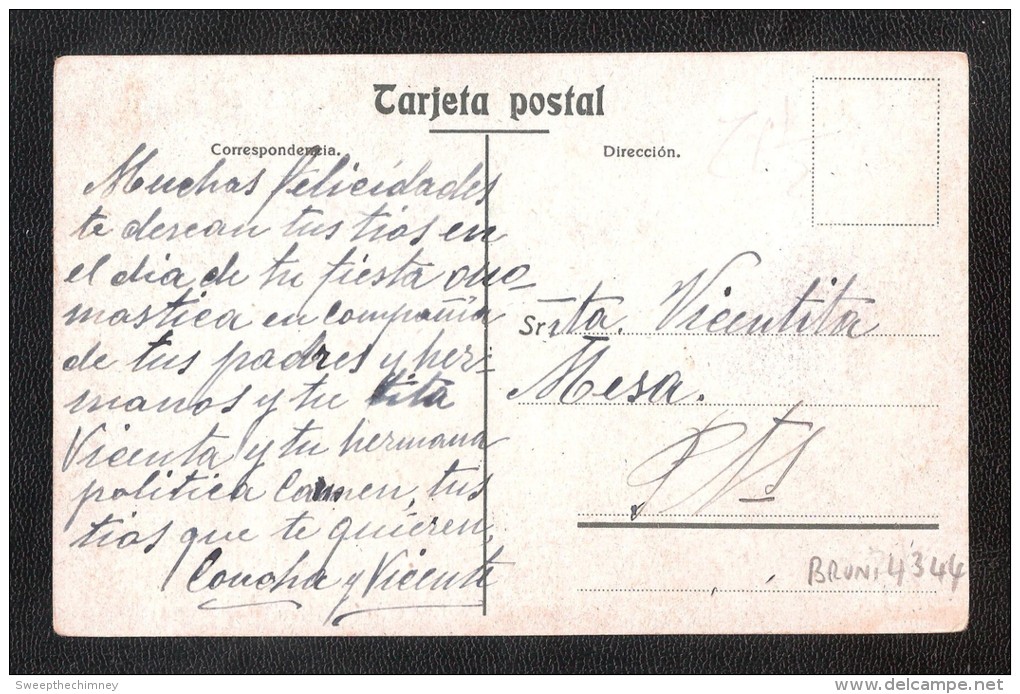 Tarjeta postal
Correspondencia.
Dirección.
Muchas felicidades
te desean tus tios en
el dia de tu fiesta ono-
mastica en compañia
de tus padres y her-
manos y tu tita
Vicenta y tu hermana
politica Carmen, tus
tios que te quieren,
Concha y Vicente
Srita. Vicentita
Mesa.
BRUNi 4344
Sweepthechimney
delcampe.net